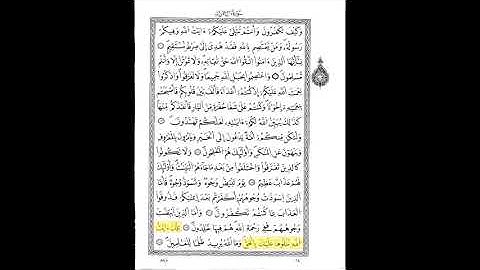 وَكَيْفَ تَكْفُرُونَ وَأَنتُمْ تُتْلَىٰ عَلَيْكُمْ ءَايَٰتُ ٱللَّهِ وَفِيكُمْ
رَسُولُهُۥ وَمَن يَعْتَصِم بِٱللَّهِ فَقَدْ هُدِىَ إِلَىٰ صِرَٰطٍ مُّسْتَقِيمٍ
يَٰٓأَيُّهَا ٱلَّذِينَ ءَامَنُوا۟ ٱتَّقُوا۟ ٱللَّهَ حَقَّ تُقَاتِهِۦ وَلَا تَمُوتُنَّ إِلَّا وَأَنتُم
مُّسْلِمُونَ وَٱعْتَصِمُوا۟ بِحَبْلِ ٱللَّهِ جَمِيعًا وَلَا تَفَرَّقُوا۟ وَٱذْكُرُوا۟
نِعْمَتَ ٱللَّهِ عَلَيْكُمْ إِذْ كُنتُمْ أَعْدَآءً فَأَلَّفَ بَيْنَ قُلُوبِكُمْ فَأَصْبَحْتُم
بِنِعْمَتِهِۦٓ إِخْوَٰنًا وَكُنتُمْ عَلَىٰ شَفَا حُفْرَةٍ مِّنَ ٱلنَّارِ فَأَنقَذَكُم مِّنْهَا
كَذَٰلِكَ يُبَيِّنُ ٱللَّهُ لَكُمْ ءَايَٰتِهِۦ لَعَلَّكُمْ تَهْتَدُونَ
وَلْتَكُن مِّنكُمْ أُمَّةٌ يَدْعُونَ إِلَى ٱلْخَيْرِ وَيَأْمُرُونَ بِٱلْمَعْرُوفِ
وَيَنْهَوْنَ عَنِ ٱلْمُنكَرِ وَأُو۟لَٰٓئِكَ هُمُ ٱلْمُفْلِحُونَ وَلَا تَكُونُوا۟
كَٱلَّذِينَ تَفَرَّقُوا۟ وَٱخْتَلَفُوا۟ مِنۢ بَعْدِ مَا جَآءَهُمُ ٱلْبَيِّنَٰتُ وَأُو۟لَٰٓئِكَ
لَهُمْ عَذَابٌ عَظِيمٌ يَوْمَ تَبْيَضُّ وُجُوهٌ وَتَسْوَدُّ وُجُوهٌ فَأَمَّا
ٱلَّذِينَ ٱسْوَدَّتْ وُجُوهُهُمْ أَكَفَرْتُم بَعْدَ إِيمَٰنِكُمْ فَذُوقُوا۟
ٱلْعَذَابَ بِمَا كُنتُمْ تَكْفُرُونَ وَأَمَّا ٱلَّذِينَ ٱبْيَضَّتْ
وُجُوهُهُمْ فَفِى رَحْمَةِ ٱللَّهِ هُمْ فِيهَا خَٰلِدُونَ تِلْكَ ءَايَٰتُ
ٱللَّهِ نَتْلُوهَا عَلَيْكَ بِٱلْحَقِّ وَمَا ٱللَّهُ يُرِيدُ ظُلْمًا لِّلْعَٰلَمِينَ